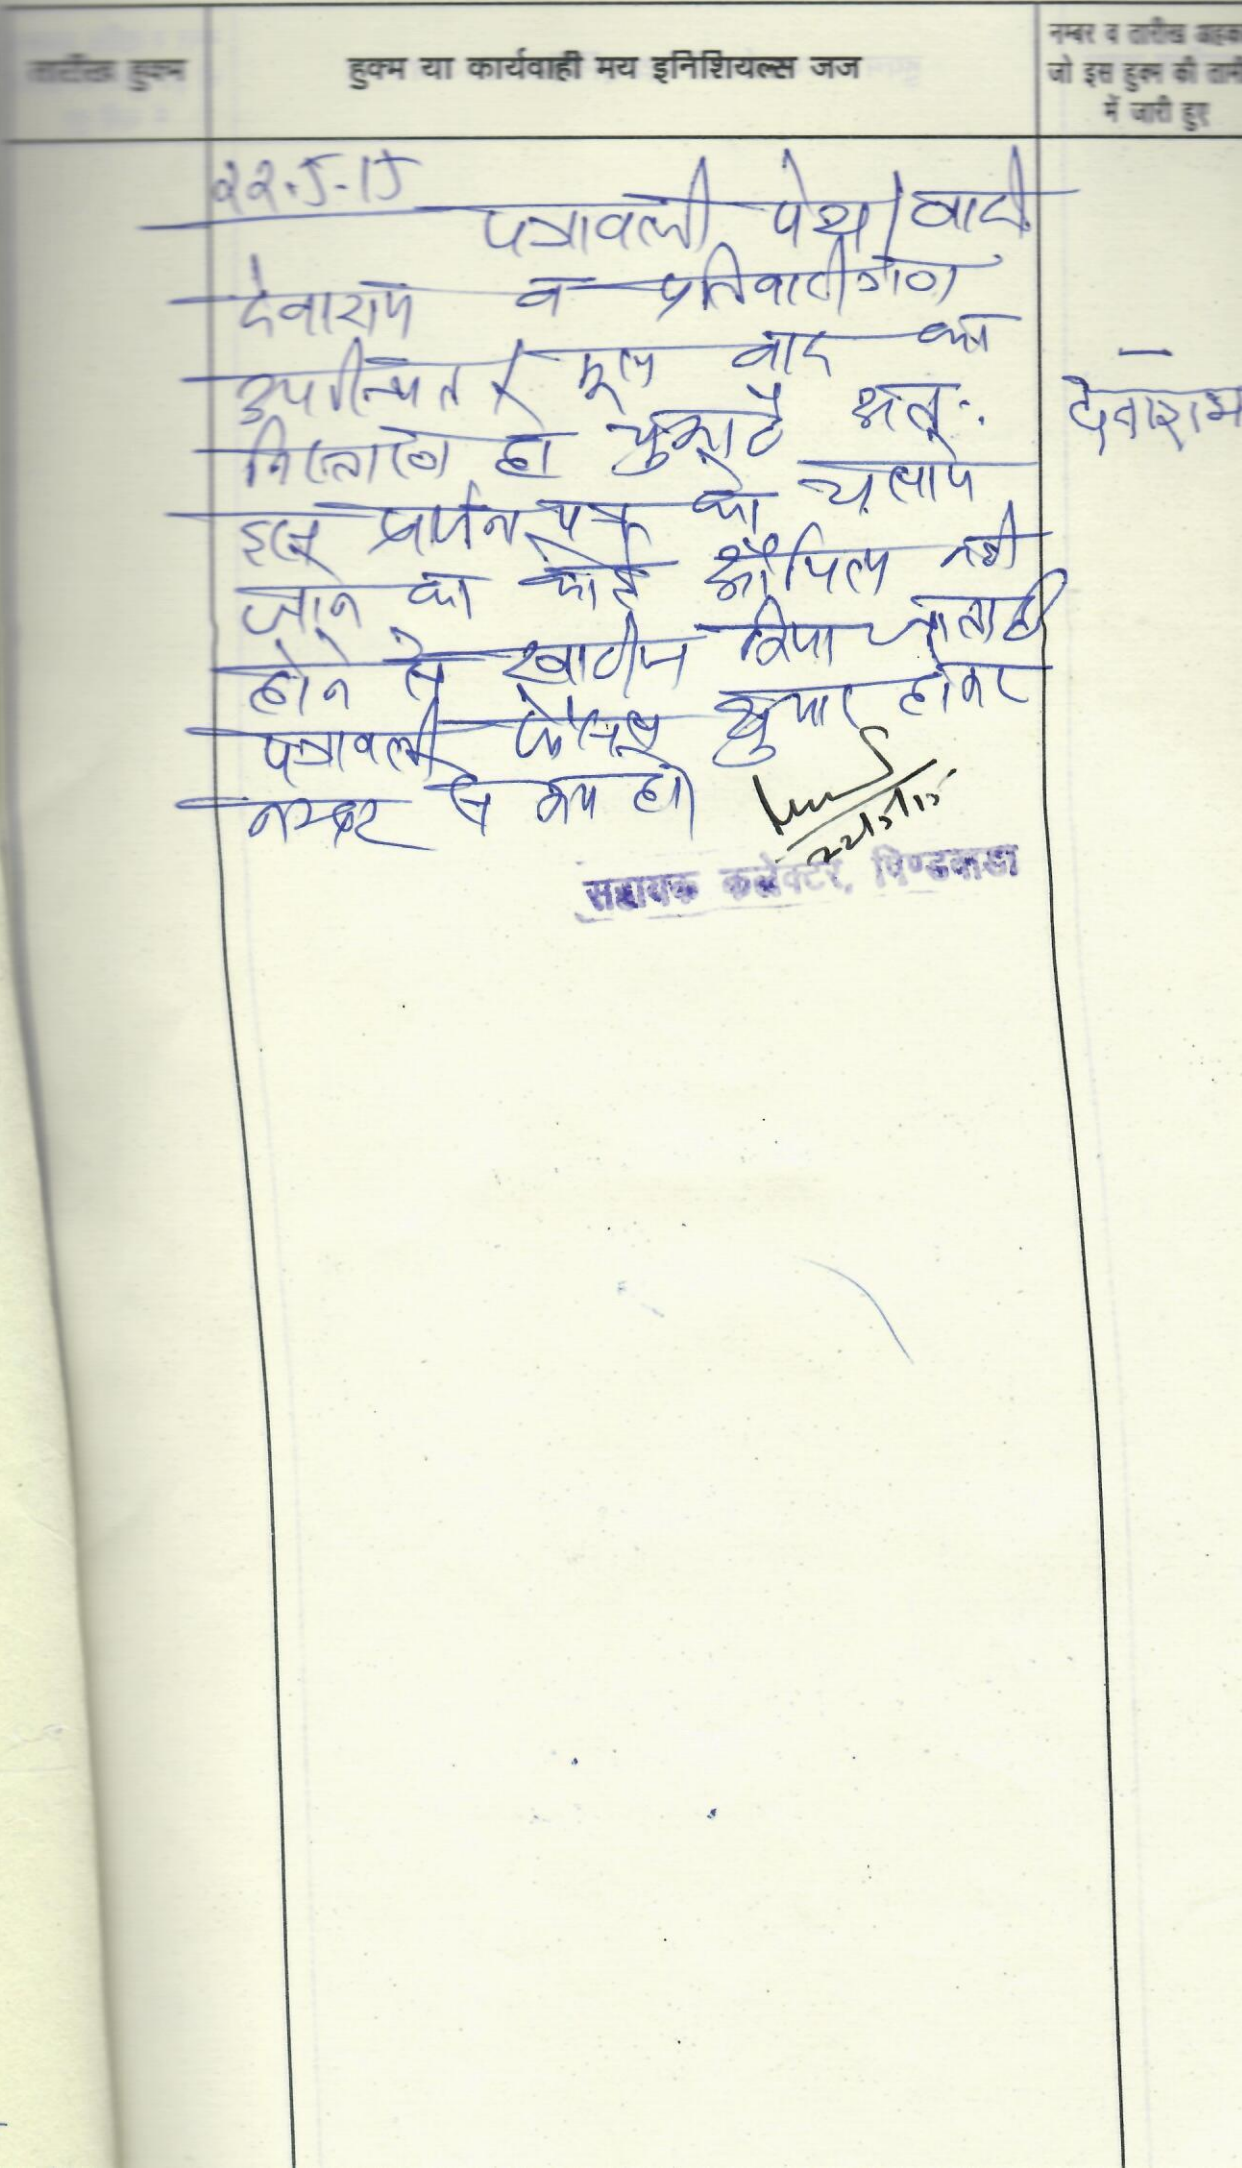 तारीख हुकम
हुक्म या कार्यवाही मय इनिशियल्स जज
नम्बर व तारीख अहका
जो इस हुक्म की तामी
में जारी हुए
22.5-15
पत्रावली पेश। वादी
देवाराम व प्रतिवादीगण
उपस्थित। मूल वाद का
निस्तारण हो चुका है अतः
देवाराम
इस प्रार्थना पत्र को चलाये
जाने का कोई औचित्य नही
होने से खारीज किया जाता है
पत्रावली फैसल शुमार होकर
नम्बर से कम हो।
22/5/15
सहायक कलेक्टर, पिण्डवाडा